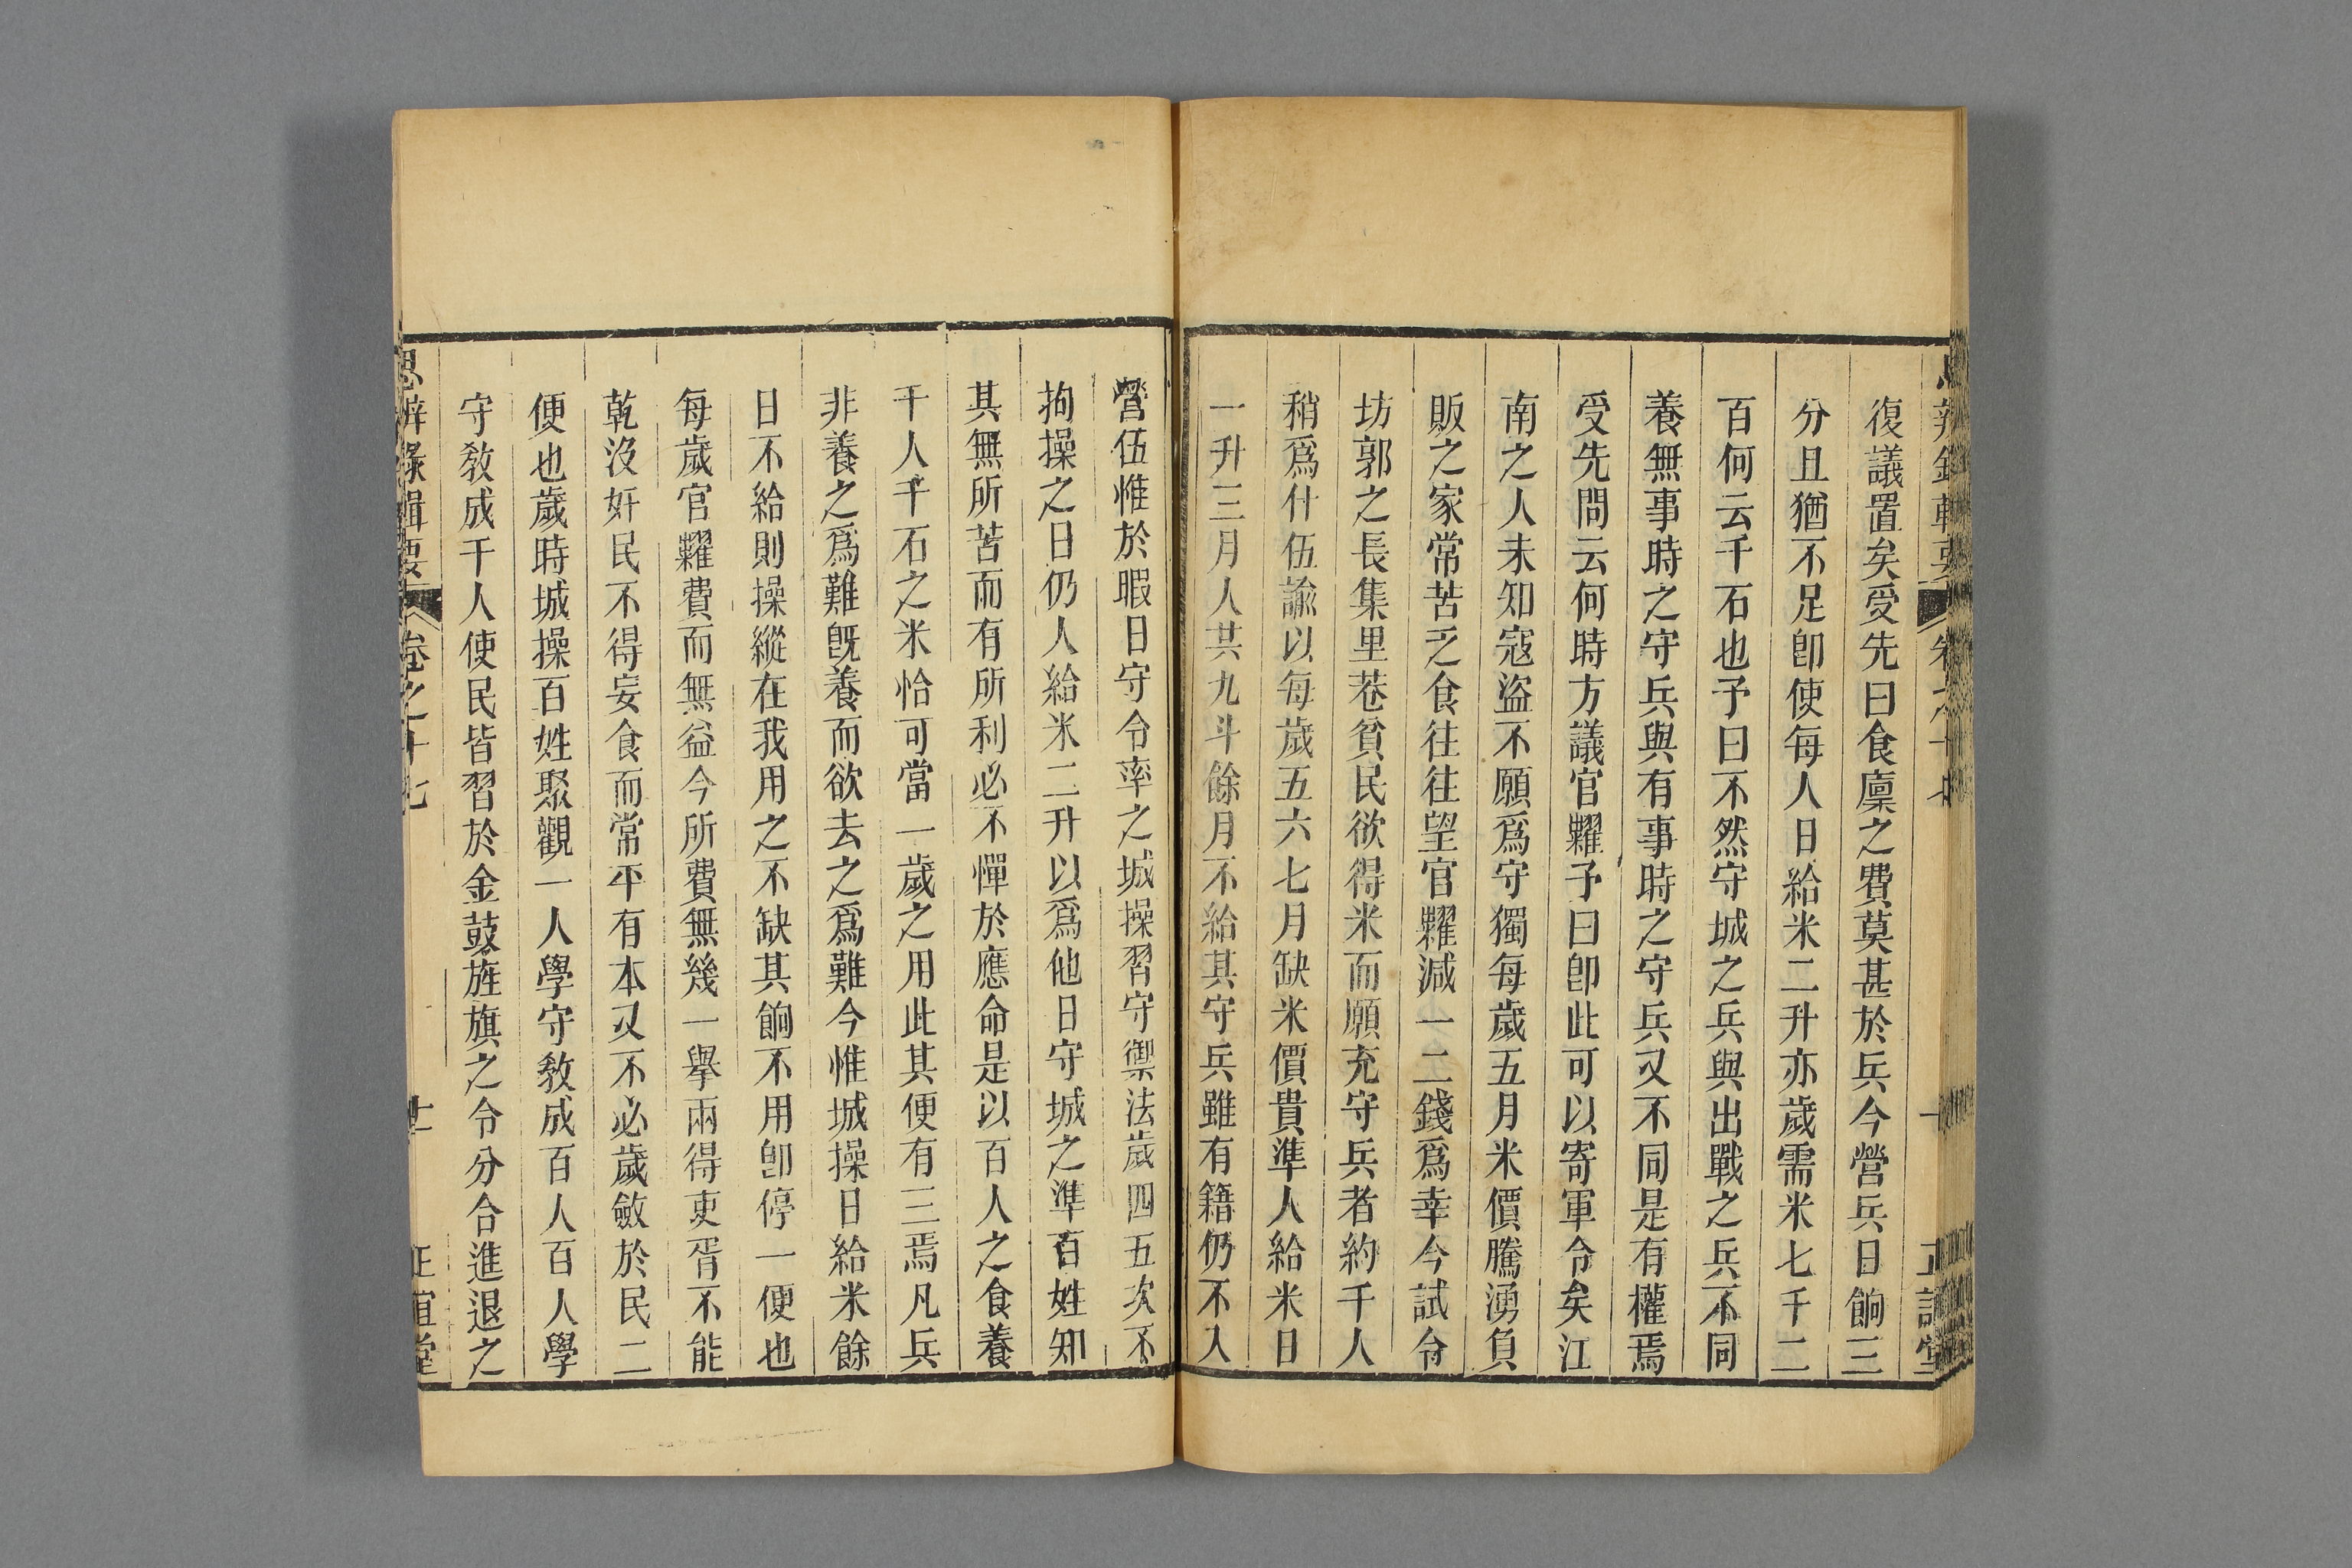 復議置矣受先曰食廩之費莫甚於兵今營兵日餉三
分且猶不足卽使每人日給米二升亦歲需米七千二
百何云千石也予曰不然守城之兵與出戰之兵不同
養無事時之守兵與有事時之守兵又不同是有權焉
受先問云何時方議官糶予曰卽此可以寄軍令矣江
南之人未知寇盜不願爲守獨每歲五月米價騰湧負
販之家常苦乏食往往望官糶減一二錢爲幸今試令
坊郭之長集里巷貧民欲得米而願充守兵者約千人
稍爲什伍諭以每歲五六七月缺米價貴準人給米日
一升三月人共九斗餘月不給其守兵雖有籍仍不入
營伍惟於暇日守令率之城操習守禦法歲四五次不
拘操之日仍人給米二升以爲他日守城之準百姓知
其無所苦而有所利必不憚於應命是以百人之食養
千人千石之米恰可當一歲之用此其便有三焉凡兵
非養之爲難旣養而欲去之爲難今惟城操日給米餘
日不給則操縱在我用之不缺其餉不用卽停一便也
每歲官糶費而無益今所費無幾一舉兩得吏胥不能
乾沒奸民不得妄食而常平有本又不必歲斂於民二
便也歲時城操百姓聚觀一人學守敎成百人百人學
守敎成千人使民皆習於金鼓旌旗之令分合進退之
思辨錄輯要 卷之十七 正誼堂